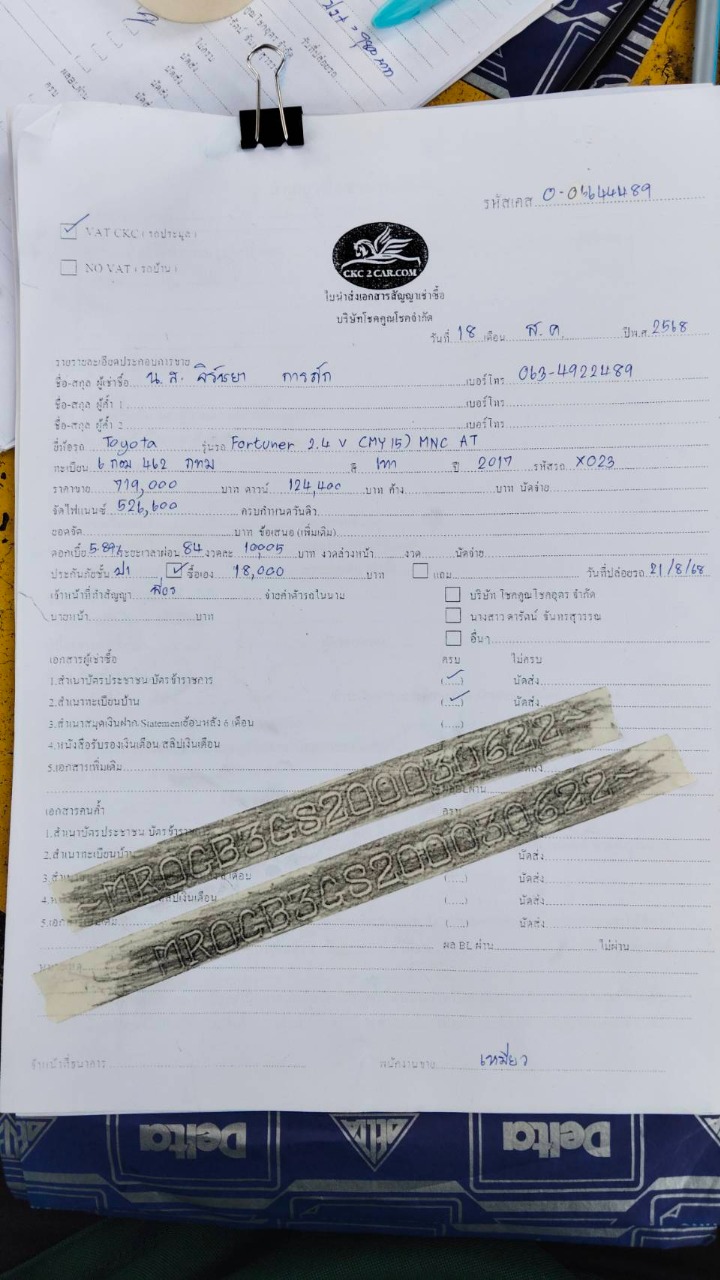 รหัสเคส 0-06644489
VAT CKC ( รถประมูล )
NO VAT ( รถบ้าน )
CKC 2 CAR.COM
ใบนำส่งเอกสารสัญญาเช่าซื้อ
บริษัทโชคคูณโชคจำกัด
วันที่ 18 เดือน ส.ค. ปีพ.ศ. 2568
รายรายละเอียดประกอบการขาย
ชื่อ-สกุล ผู้เช่าซื้อ น.ส. เบอร์โทร 063-4922489
ชื่อ-สกุล ผู้ค้ำ 1 เบอร์โทร
ชื่อ-สกุล ผู้ค้ำ 2 เบอร์โทร
ยี่ห้อรถ Toyota รุ่นรถ Fortuner 2.4 V (MY15) MNC AT
ทะเบียน 6 กอม 462 กทม สี เทา ปี 2017 รหัสรถ X023
ราคาขาย 719,000 บาท ดาวน์ 124,400 บาท ค้าง บาท นัดจ่าย
จัดไฟแนนซ์ 526,600 ครบกำหนดวันดิว
ยอดจัด บาท ข้อเสนอ (เพิ่มเติม)
ดอกเบี้ย 5.89% ระยะเวลาผ่อน 84 งวดละ 10,005 บาท งวดล่วงหน้า งวด นัดจ่าย
ประกันภัยชั้น ป1 ซื้อเอง 18,000 บาท แถม วันที่ปล่อยรถ 21/8/68
เจ้าหน้าที่ทำสัญญา จ่ายค่าตัวรถในนาม บริษัท โชคคูณโชคยูคาร์ จำกัด
นายหน้า บาท นางสาว ดารัตน์ จันทรสุวรรณ
อื่นๆ
เอกสารผู้เช่าซื้อ ครบ ไม่ครบ
1.สำเนาบัตรประชาชน/บัตรข้าราชการ นัดส่ง
2.สำเนาทะเบียนบ้าน นัดส่ง
3.สำเนาสมุดเงินฝาก/Statementย้อนหลัง 6 เดือน
4.หนังสือรับรองเงินเดือน/สลิปเงินเดือน
5.เอกสารเพิ่มเติม
~MR0CB3GS200030622~
~MR0CB3GS200030622~
เอกสารคนค้ำ ครบ
1.สำเนาบัตรประชาชน/บัตรข้าราช
2.สำเนาทะเบียนบ้าน นัดส่ง
เดือน (.....) นัดส่ง
สลิปเงินเดือน (.....) นัดส่ง
(.....) นัดส่ง
ผล BL ผ่าน ไม่ผ่าน
เจ้าหน้าที่ธนาคาร พนักงานขาย เหมียว
Delta
Delta